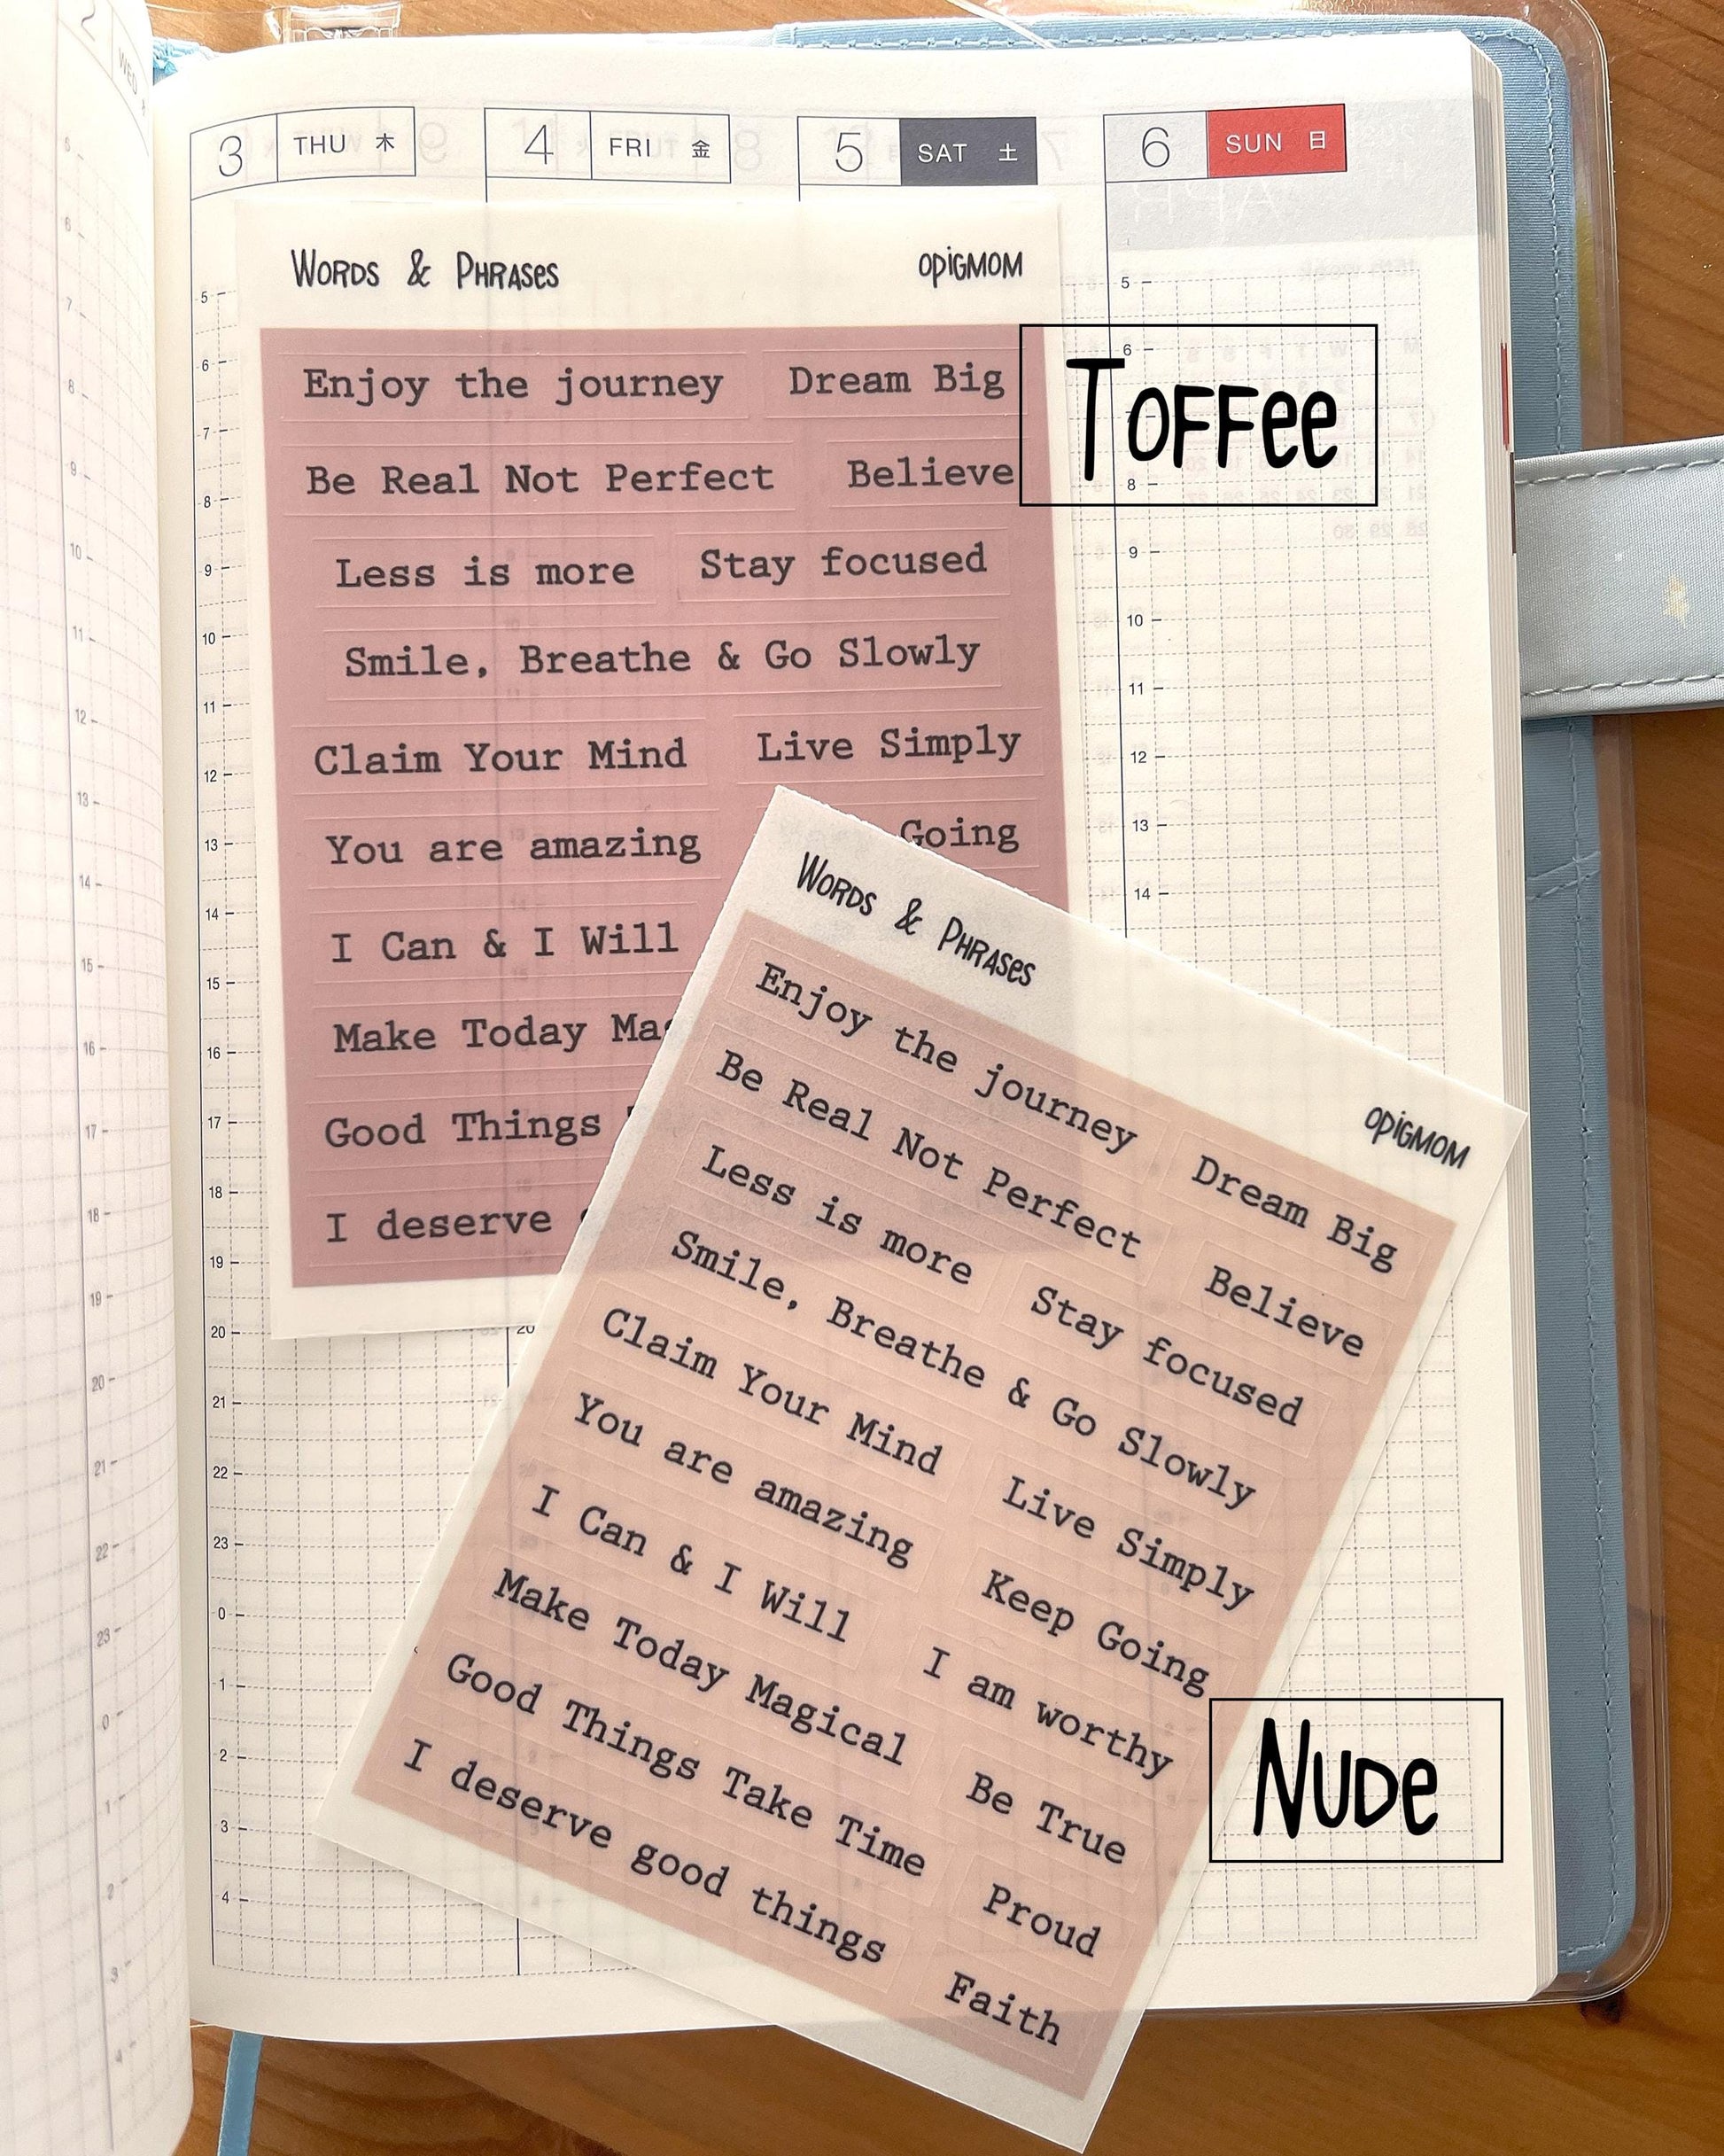 2
WED
3 THU 木
4 FRI 金
5 SAT 土
6 SUN 日
Words & Phrases
opigmom
Enjoy the journey
Dream Big
Be Real Not Perfect
Believe
Less is more
Stay focused
Smile, Breathe & Go Slowly
Claim Your Mind
Live Simply
You are amazing
Going
I Can & I Will
Make Today
Good Things
I deserve
Toffee
Words & Phrases
opigmom
Enjoy the journey
Dream Big
Be Real Not Perfect
Believe
Less is more
Stay focused
Smile, Breathe & Go Slowly
Claim Your Mind
Live Simply
You are amazing
Keep Going
I Can & I Will
I am worthy
Make Today Magical
Be True
Good Things Take Time
Proud
I deserve good things
Faith
Nude
5
6
7
8
9
10
11
12
13
14
15
16
17
18
19
20
21
22
23
0
1
2
3
4
20
5
6
8
9
10
11
12
13
14
6
7
8
9
10
11
12
13
14
15
16
17
18
19
20
21
22
23
0
1
2
3
4